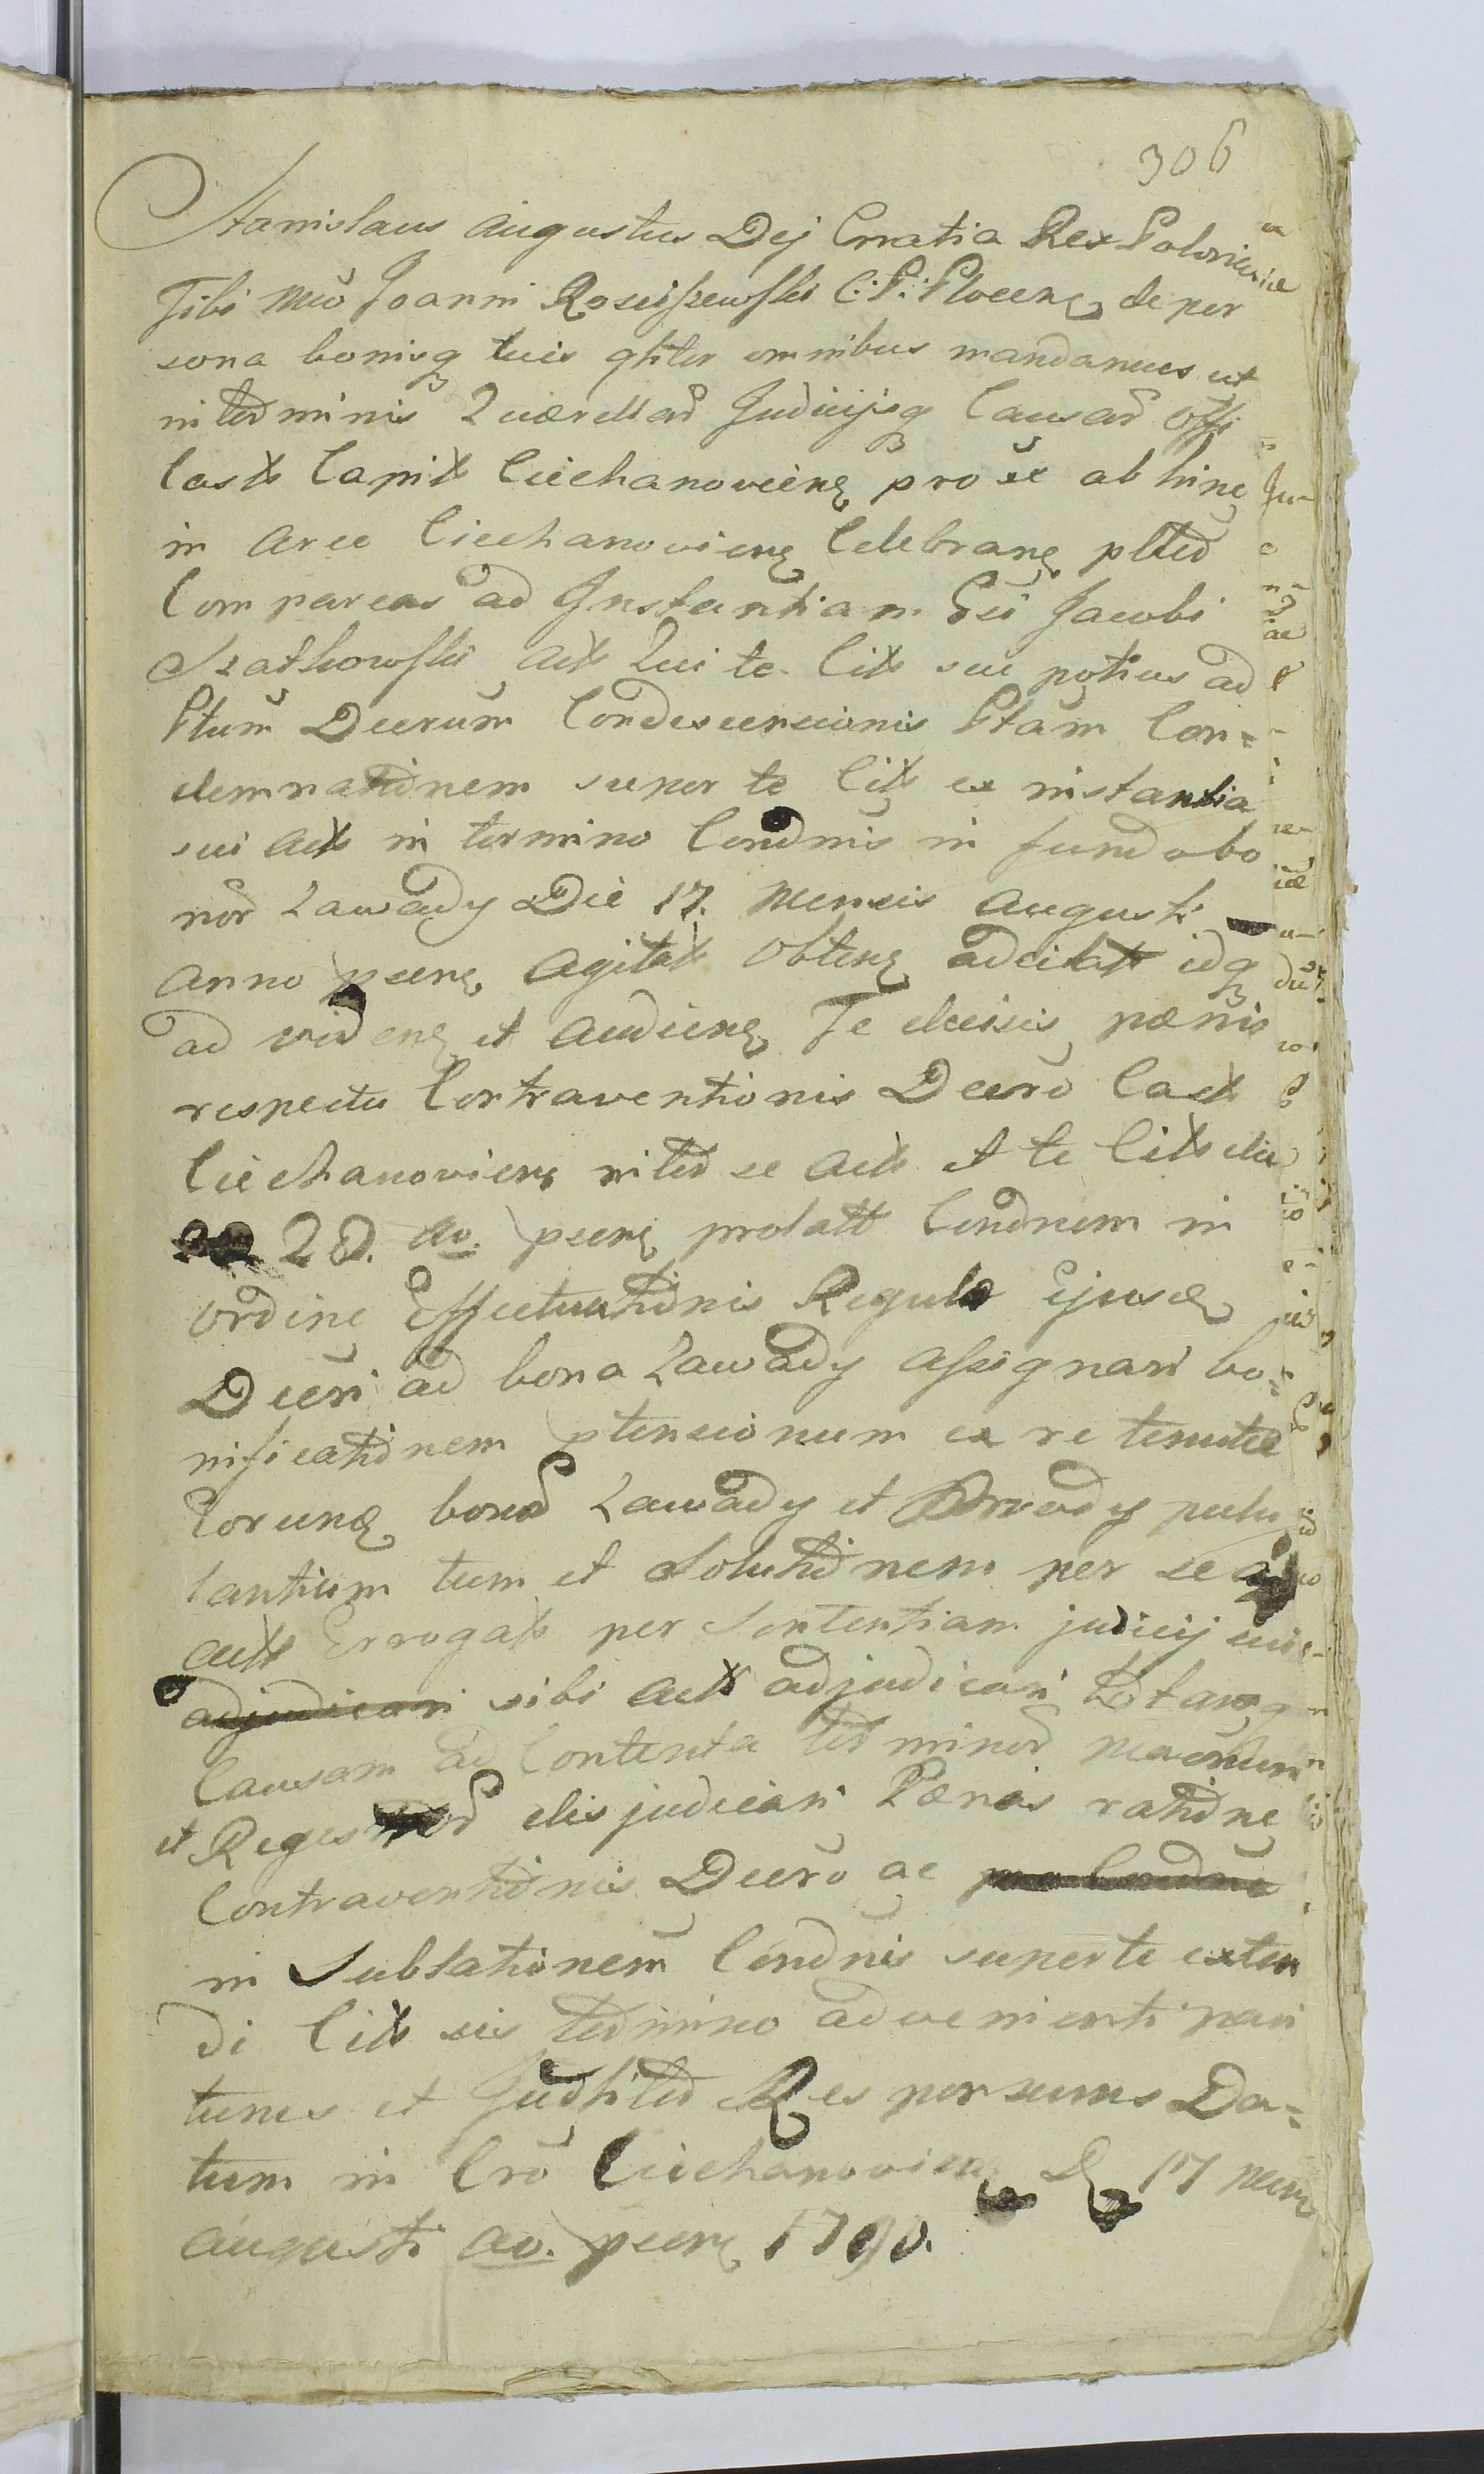 306
Stanislaus Augustus Dej Gratia Rex Poloniae
Tibi Mco Joanni Rosciszewski C: P: Plocen de per
sona bonisq tuis gnter omnibus mandamus ut
in terminis Quærellar Judicijsq Causar Offi
Cast Capit Ciechanoviens pro se ab hinc
in Arce Ciechanoviens Celebran pltr
Compareas ad Instantiam Gsi Jacobi
Szatkowski Act Qui te Cit sui potius ad
Ptum Decrum Condescensionis Ptam Con=
demnationem super te Cit ex instantia
sui Act in termino Condnis in fundo bo
nor Zawady Die 17. Mensis Augusti
Anno pnt Agitat Obten adcitat idq
ad viden et Audien Te decisis pænis
respectu Contraventionis Decro Cast
Ciechanoviens inter se Act et te Cit die
20. Ao. pnt prolatt Condnem in
ordine Effectuationis Regulæ Ejusd
Decri ad bona Zawady Assignari bo=
nificationem ptensionum ex re tenutæ
Eorund bonor Zawady et Brudy pulu
lantium tum et Solutionem per se
Act Errogat per Sententiam judicij
adjudicari sibi Act adjudicari Totamq
Causam ad Contenta terminor
et Regestror disjudicari Pænas ratione
Contraventionis Decro ac pro Condne
in Sublationem Condnis super te exten
di Cit sis termino advenienti pari
turus et Judltr Responsurus Da=
tum in Cro Ciechanovien D 17 Mens
Augusti Ao. pnt 1790.